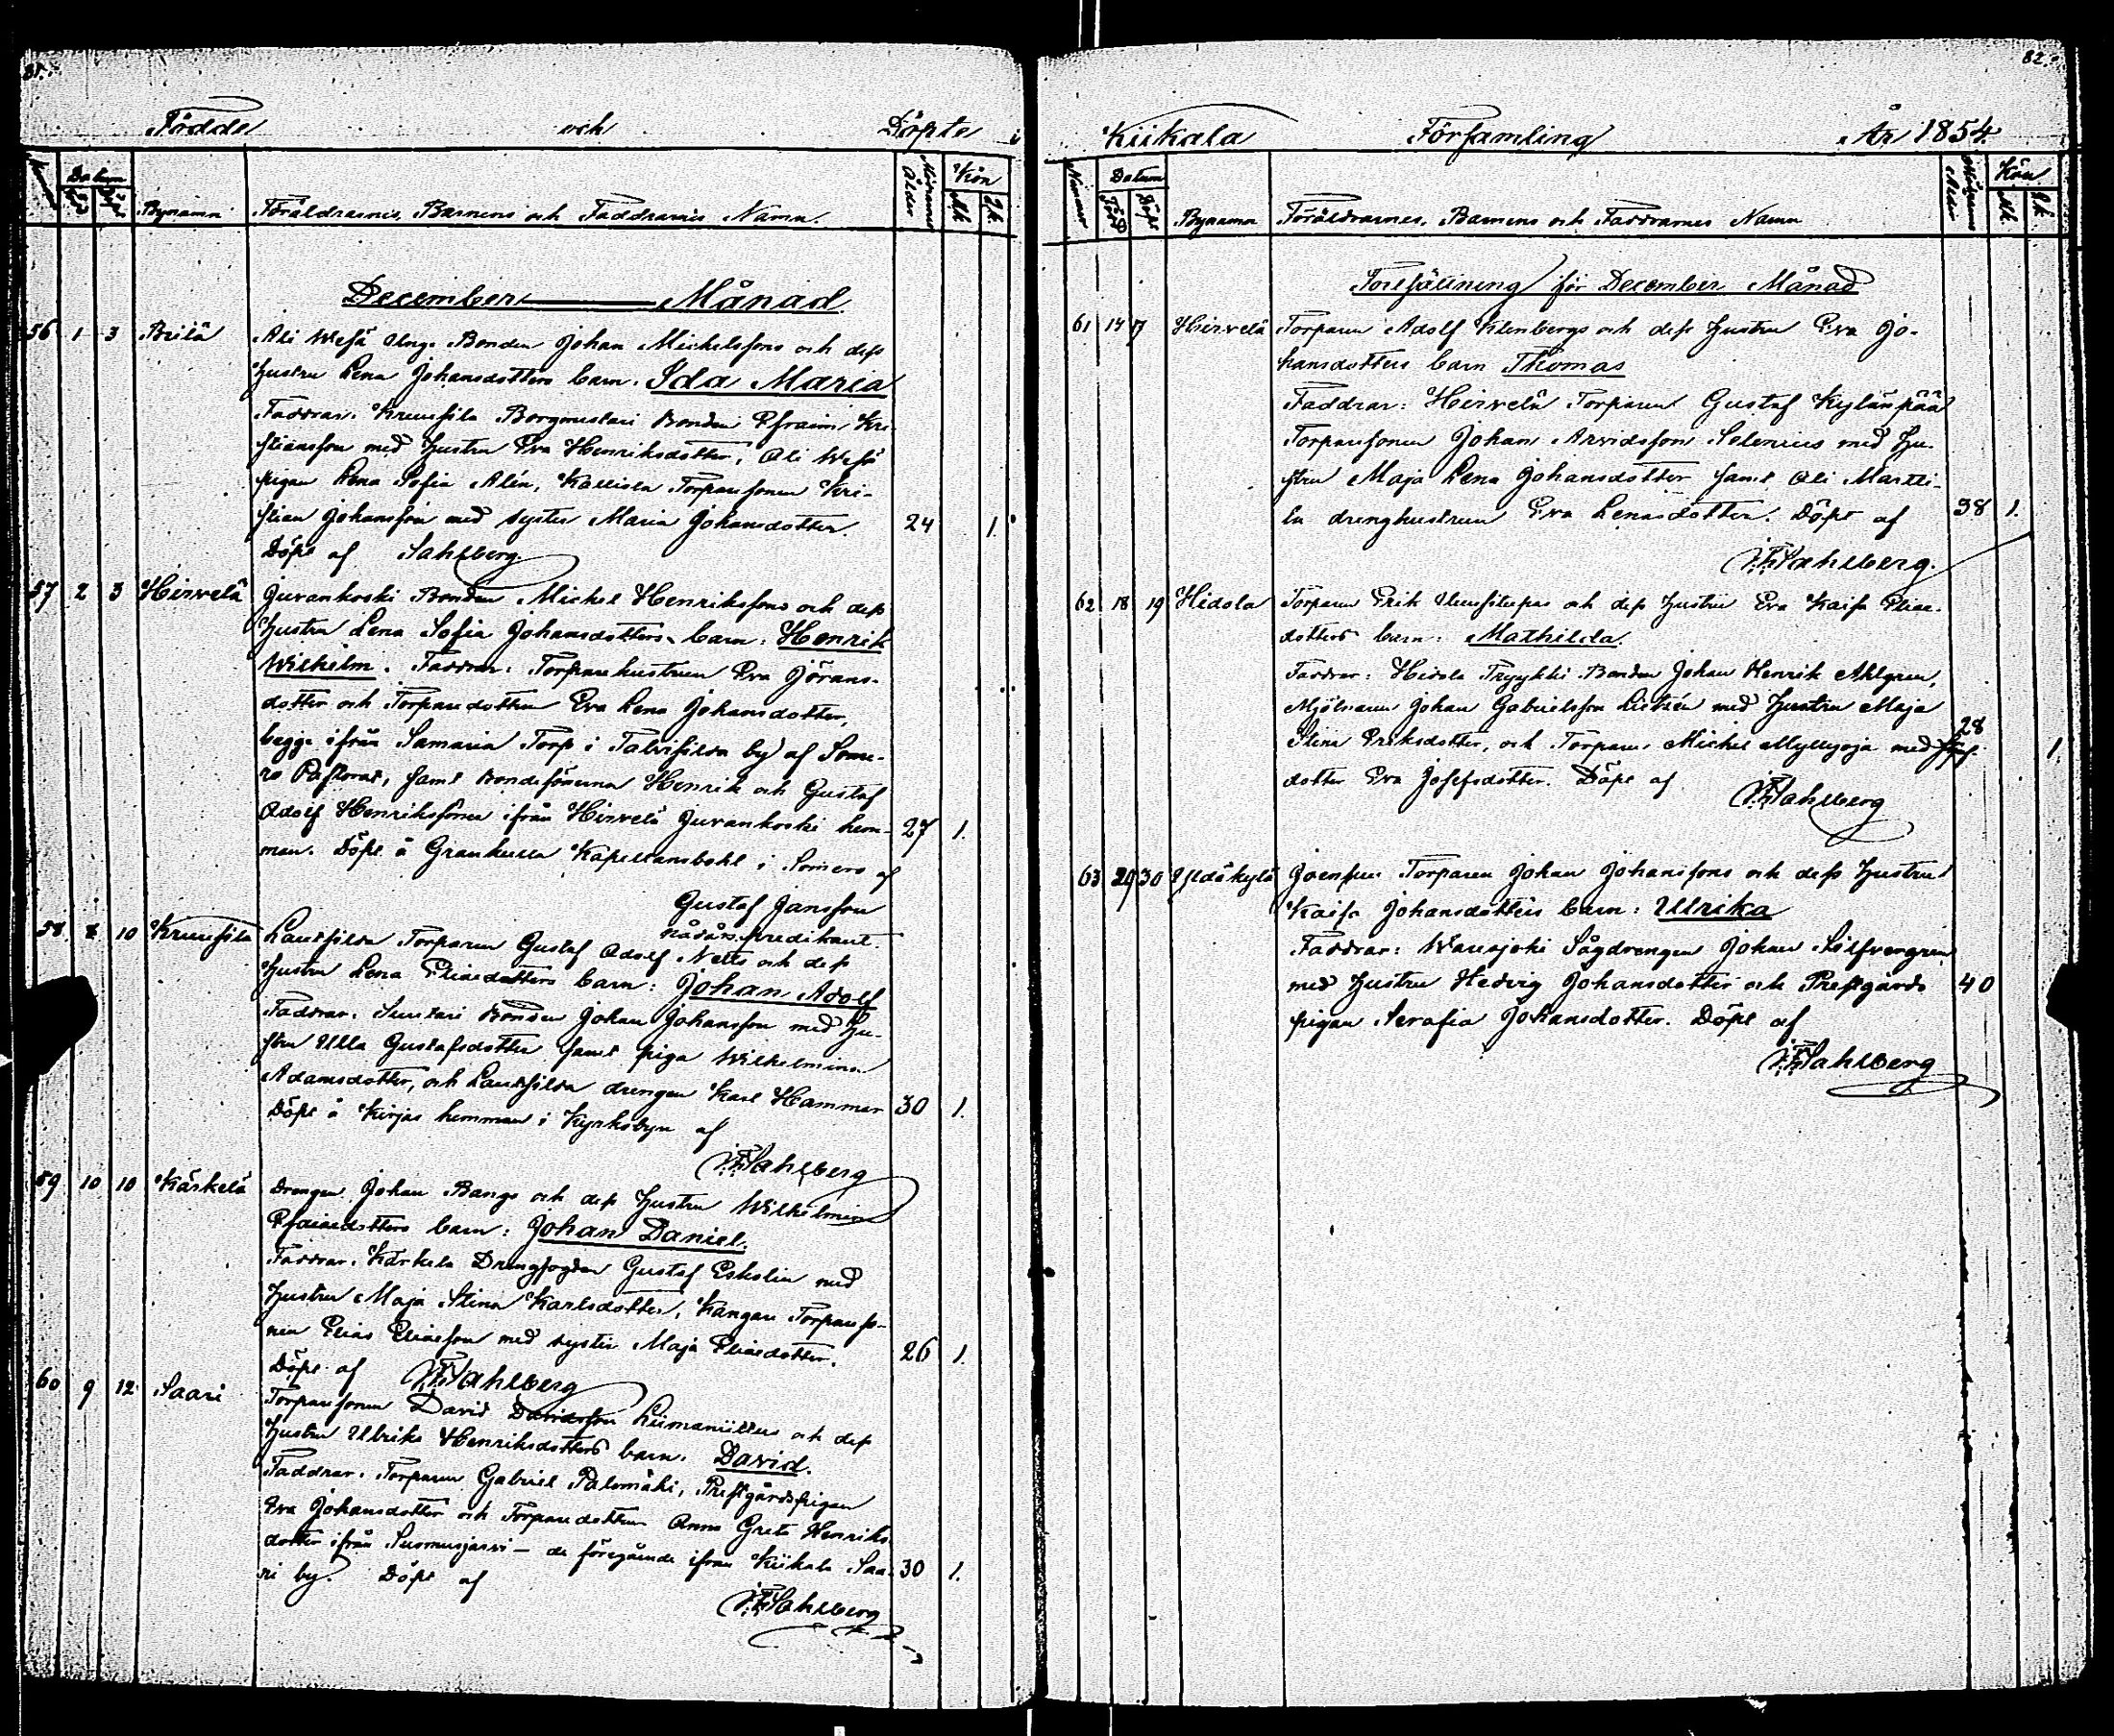 81.
Födde och Döpte i
Datum Kön
Född Döpt Bynamn Föräldrarnes, Barnens och Faddrarnes Namn. Modrens Ålder Mk. Qk.
December Månad
56 1 3 Beilä Ali Wesä Unge Bonden Johan Michelssons och dess
hustru Lena Johansdotters barn. Ida Maria
Faddrar. Kruusila Borgmestari Bonden Efraim Kri-
stiansson med hustru Eva Henriksdotter, Ali Wesä
pigan Lena Sofia Alén, Kalliola Torparesonen Kri-
stian Johansson med syster Maria Johansdotter. 24 1.
Döpt af Sahlberg.
57 2 3 Hirvelä Juvankoski Bonden Michel Henrikssons och dess
hustru Lena Sofia Johansdotters barn: Henrik
Wilhelm. Faddrar: Torparehustrun Eva Jörans-
dotter och Torparedottren Eva Lena Johansdotter,
begge ifrån Samaria Torp i Talvisilda by af Some-
ro Pastorat, samt Bondesönerna Henrik och Gustaf
Adolf Henrikssöner ifrån Hirvelä Juvankoski hem- 27 1.
man. Döpt å Grankulla Kapellansbohl i Somero af
Gustaf Jansson
nådårs predikant.
58 8 10 Kruusila Lautsilda Torparen Gustaf Adolf Netts och dess
hustru Lena Eliaedotters barn: Johan Adolf
Faddrar. Suutari Bonden Johan Johansson med hu-
stru Ulla Gustafsdotter samt piga Wilhelmina
Adamsdotter, och Lautsilda drengen Karl Hammar 30 1.
Döpt å Kirjas hemman i Kyrkobyn af
Sahlberg
59 10 10 Kärkelä Drengen Johan Bangs och dess hustru Wilhelmina
Esaiaedotters barn: Johan Daniel.
Faddrar. Kärkelä Drengfogden Gustaf Eskolin med
hustru Maja Stina Karlsdotter, Kangare Torpareso-
nen Elias Eliaesson med syster Maja Eliaedotter. 26 1.
Döpt af Sahlberg
60 9 12 Saari Torparesonen David Davidsson Liimaniittus och dess
hustru Ulrika Henriksdotters barn. David.
Faddrar. Torparen Gabriel Palomäki, Prestgårdspigan
Eva Johansdotter och Torparedottren Anna Greta Henriks
dotter ifrån Suomusjärvi — de föregående ifrån Kiikala Saa- 30 1.
ri by. Döpt af
Sahlberg
82.
Kiikala Församling År 1854.
Nummer Datum Kön
Född Döpt Bynamn Föräldrarnes, Barnens och Faddrarnes Namn Modrens Ålder Mk. Qk.
Fortsättning för December Månad
61 14 17 Hirvelä Torparen Adolf Klenbergs och dess hustru Eva Jo-
hansdotters barn Thomas
Faddrar: Hirvelä Torparen Gustaf Kylänpää
Torparesonen Johan Arvidsson Selenius med hu-
stru Maja Lena Johansdotter samt Ali Martti-
la drenghustrun Eva Lenasdotter. Döpt af 38 1.
Sahlberg.
62 18 19 Hidola Torparen Erik Uusitupas och dess hustru Eva Kaisa Eliae-
dotters barn: Mathilda.
Faddrar: Hidola Pryykki Bonden Johan Henrik Ahlgren,
Mjölnaren Johan Gabrielsson Lietzén med hustru Maja
Stina Eriksdotter, och Torparen Michel Myllyoja med 28 1.
dotter Eva Josefsdotter. Döpt af
Sahlberg
63 29 30 Yltäkylä Joensuu Torparen Johan Johanssons och dess hustru
Kaisa Johansdotters barn: Ulrika
Faddrar: Wansjoki Sågdrengen Johan Silfvergren
med hustru Hedvig Johansdotter och Prestgårds 40
pigan Serafia Johansdotter. Döpt af
Sahlberg